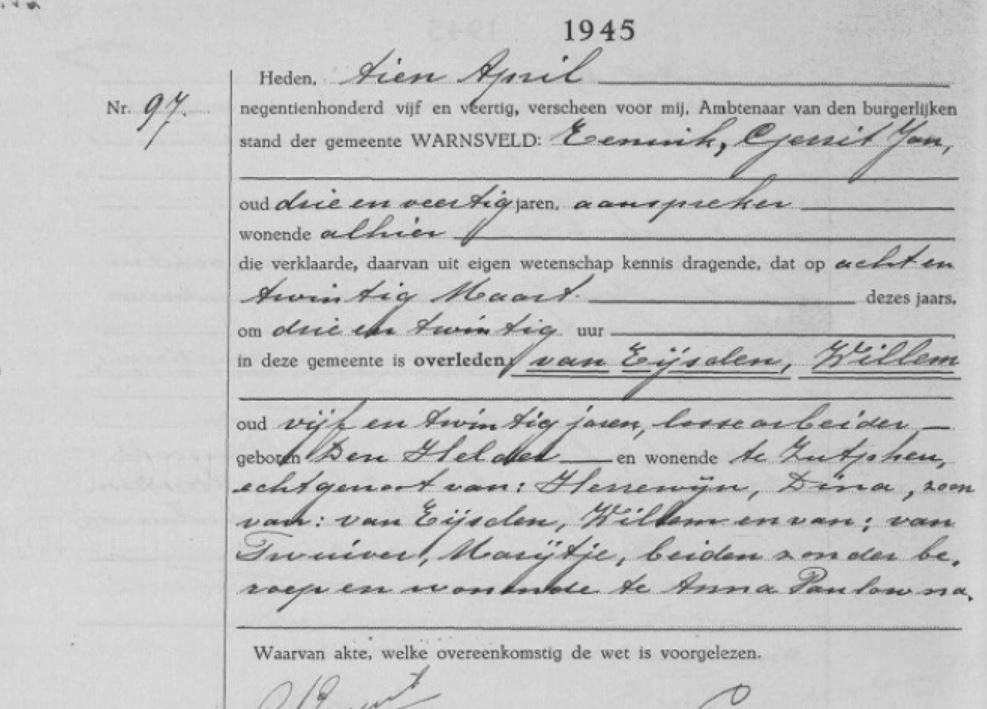 1945
Heden, tien April
Nr. 97.
negentienhonderd vijf en veertig, verscheen voor mij, Ambtenaar van den burgerlijken
stand der gemeente WARNSVELD: Eennink, Gerrit Jan,
oud drie en veertig jaren, aanspreker
wonende alhier
die verklaarde, daarvan uit eigen wetenschap kennis dragende, dat op acht en
twintig Maart. dezes jaars,
om drie en twintig uur
in deze gemeente is overleden, van Eijsden, Willem
oud vijf en twintig jaren, losse arbeider,
geboren Den Helder en wonende te Zutphen,
echtgenoot van: Herrewijn, Dina, zoon
van: van Eijsden, Willem en van: van
Twuiver, Marijtje, beiden zonder be-
roep en wonende te Anna Paulowna.
Waarvan akte, welke overeenkomstig de wet is voorgelezen.